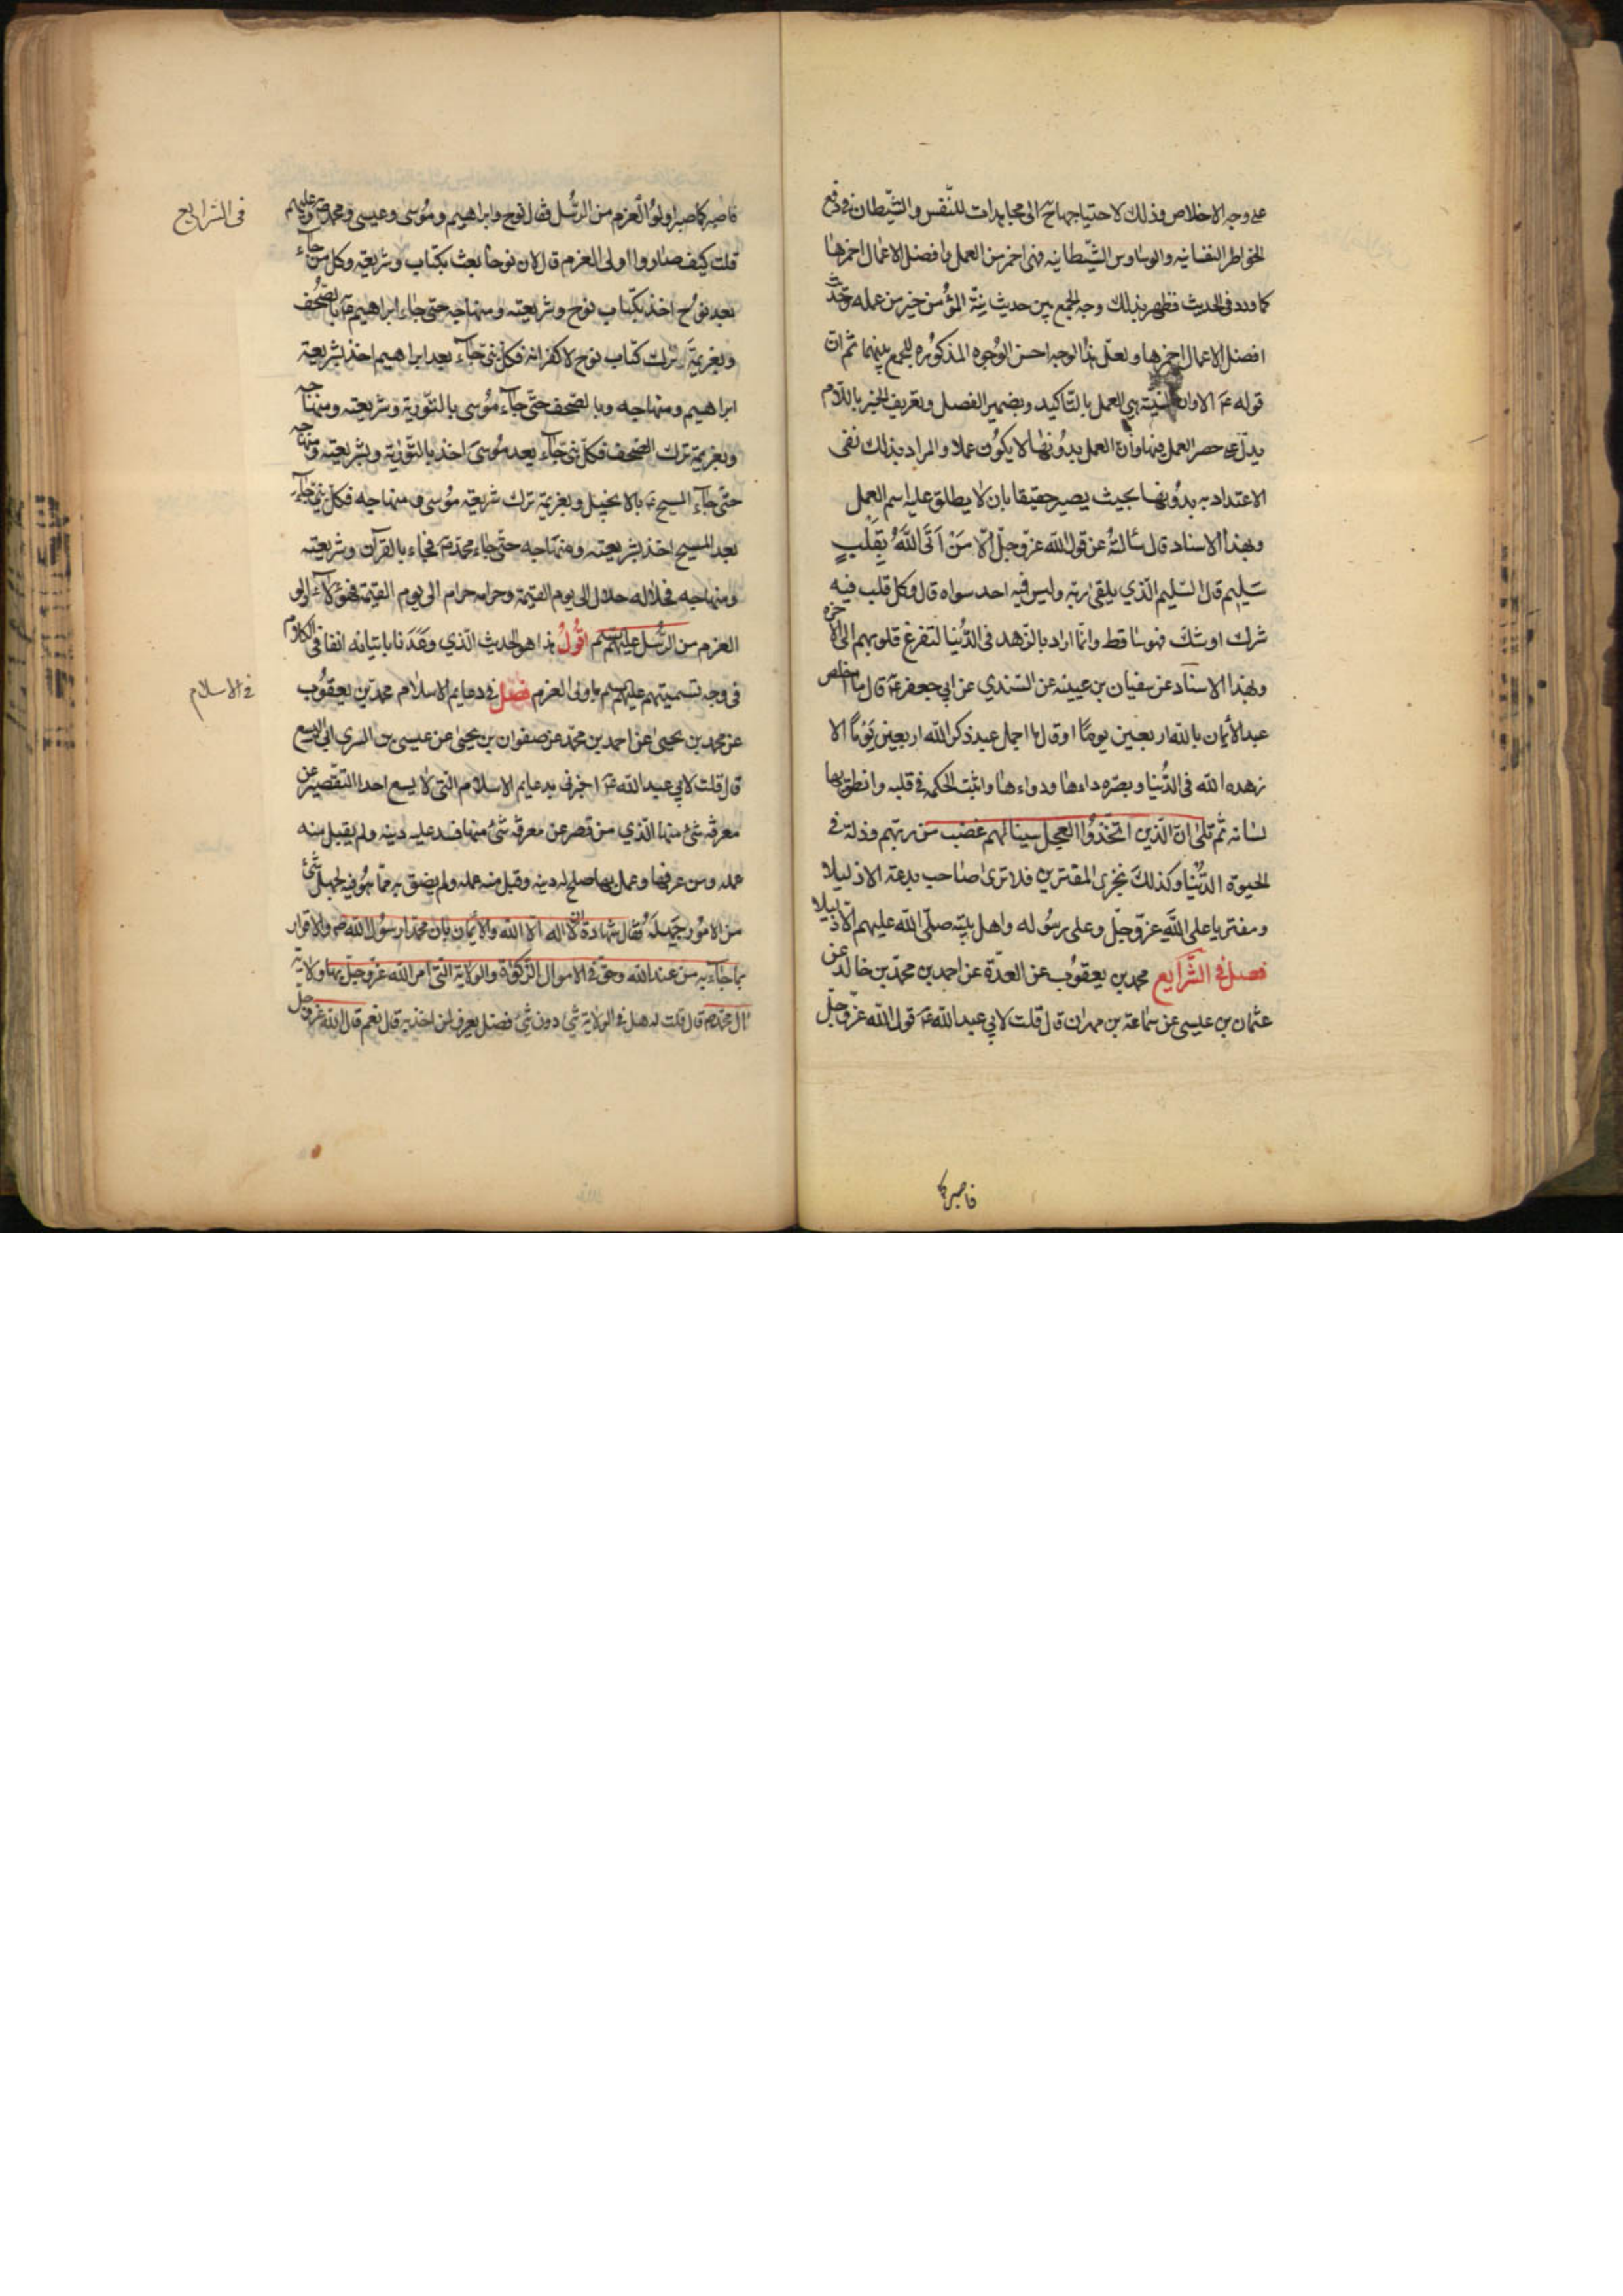 على وجه الاخلاص وذلك لاحتياجها ح الى مجاهدات للنفس والشيطان في دفع
الخواطر النفسانيه والوساوس الشيطانيه فهى احمز من العمل وافضل الاعمال احمزها
كما ورد فى الحديث فظهر بذلك وجه الجمع بين حديث نيّة المؤمن خير من عمله وحديث
افضل الاعمال احمزها ولعلّ هذا الوجه احسن الوُجوه المذكوُره للجمع بينهما ثم ان
قوله عَ الا وان النيّته هي العمل بالتاكيد وبضمير الفصل وتعريف الخبر باللام
يدلّ على حصر العمل فيها وأن العمل بدوُنها لا يكوُن عملا والمراد بذلك نفى
الاعتداد به بدوُنها بحيث يصير حقيقا بان لا يطلق عليه اسم العمل
وبهذا الاسناد قال سألتهُ عن قول الله عزّ وجلّ الّا مَنْ اَتَى اللّٰهَ بِقَلْبٍ
سَليمٍ قال السّليم الّذي يلقى ربّه وليس فيه احد سواه قال وكل قلب فيه
شرك او شكّ فهو ساقط وانّما اراد بالزّهد فى الدُّنيا لتفرغ قلوبهم الى الاخره
وبهذا الاسناد عن سفيان بن عيينه عن السّندي عن ابي جعفر عَ قال ما اخلص
عبد الأيمان بالله اربعين يومًا او قال ما اجمل عبد ذكر الله اربعين يَوْمًا الا
زهده الله فى الدُّنيا وبصّره داءها ودواءها واثبت الحكمه فى قلبه وانطق بها
لسانه ثم تلى انّ الّذين اتّخذوُا العجل سينالهم غضب من ربّهم وذلة فى
الحيوة الدُّنيا وكذلكَ نجزى المفترين فلا ترى صاحب بدعة الا ذليلا
ومفتريا على اللّٰهِ عزّ وجلّ وعلى رسُوله واهل بيته صلّى الله عليهم الا ذليلا
فصل فى الشّرايع محمد بن يعقوُب عن العدّة عن احمد بن محمّد بن خالد عن
عثمان بن عيسى عن سماعة بن مهران قال قلت لابي عبد الله عَ قول الله عزّ وجلّ
فاصبر كما
فى الشرايع
فاصبر كما صبر اولوُا العزم من الرسُل فقال نوح وابراهيم ومُوسى وعيسى ومحمد ص وعليهم
قلت كيف صاروا اولى العزم قال لان نوحًا بعث بكتاب وشريعة وكل من جاء
بعد نوُح اخذ بكتاب نوح وشريعته ومنهاجه حتى جاء ابراهيم عَ بالصّحُف
وبعزيمَة ترك كتاب نوح لا كفرا به فكلّ نبى جاء بعد ابراهيم اخذ بشريعة
ابراهيم ومنهاجه وبالصّحف حتّى جاء مُوسى بالتّورية وشريعته ومنهاجه
وبعزيمة ترك الصّحف فكلّ نبىّ جاء بعد مُوسىَ اخذ بالتّورية وبشريعته ومنهاجه
حتّى جاء المسيح عَ بالانجيل وبعزيمة ترك شريعة مُوسى ومنهاجه فكلّ نبىّ جاء
بعد المسيح اخذ بشريعته ومنهاجه حتى جاء محمّد صَ فجاء بالقرآن وشريعته
ومنهاجه فحلاله حلال الى يوم القيمة وحرامه حرام الى يوم القيمة فهؤلاء اولو
العزم من الرّسُل عليهم سم اقُولُ هذا هو الحديث الّذي وعَدَنا باتيانه انفا فى الكلام
فى الاسلام
فى وجه تسميتهم عليهم سم باولى العزم فصل فى دعايم الاسلام محمّد بن يعقوُب
عن محمد بن يحيى عن احمد بن محمّد عن صفوان بن يحيى عن عيسى بن السرى ابى اليسع
قال قلت لابي عبد الله عَ اخبرنى بدعايم الاسلام التى لا يسع احدا التّقصير عن
معرفة شئ منها الّذي من قصر عن معرفة شئ منها فسد عليه دينه ولم يقبل منه
عمله ومن عرفها وعمل بها صلح له دينه وقبل منه عمله ولم يضق به ممّا هوُ فيه لجهل شئ
من الامُور جَهِلَهُ فقال شهادة ان لا اله الا الله والأيمان بان محمّدا رسُول الله ص والاقرار
بما جاء به من عند الله وحق فى الاموال الزكوٰة والولاية التى امر الله عزّ وجلّ بها ولاية
ال محمّد ص قال قلت له هل فى الولاية شئ دون شئ فضل يعرف لمن اخذ به قال نعم قال الله عزّ وجل